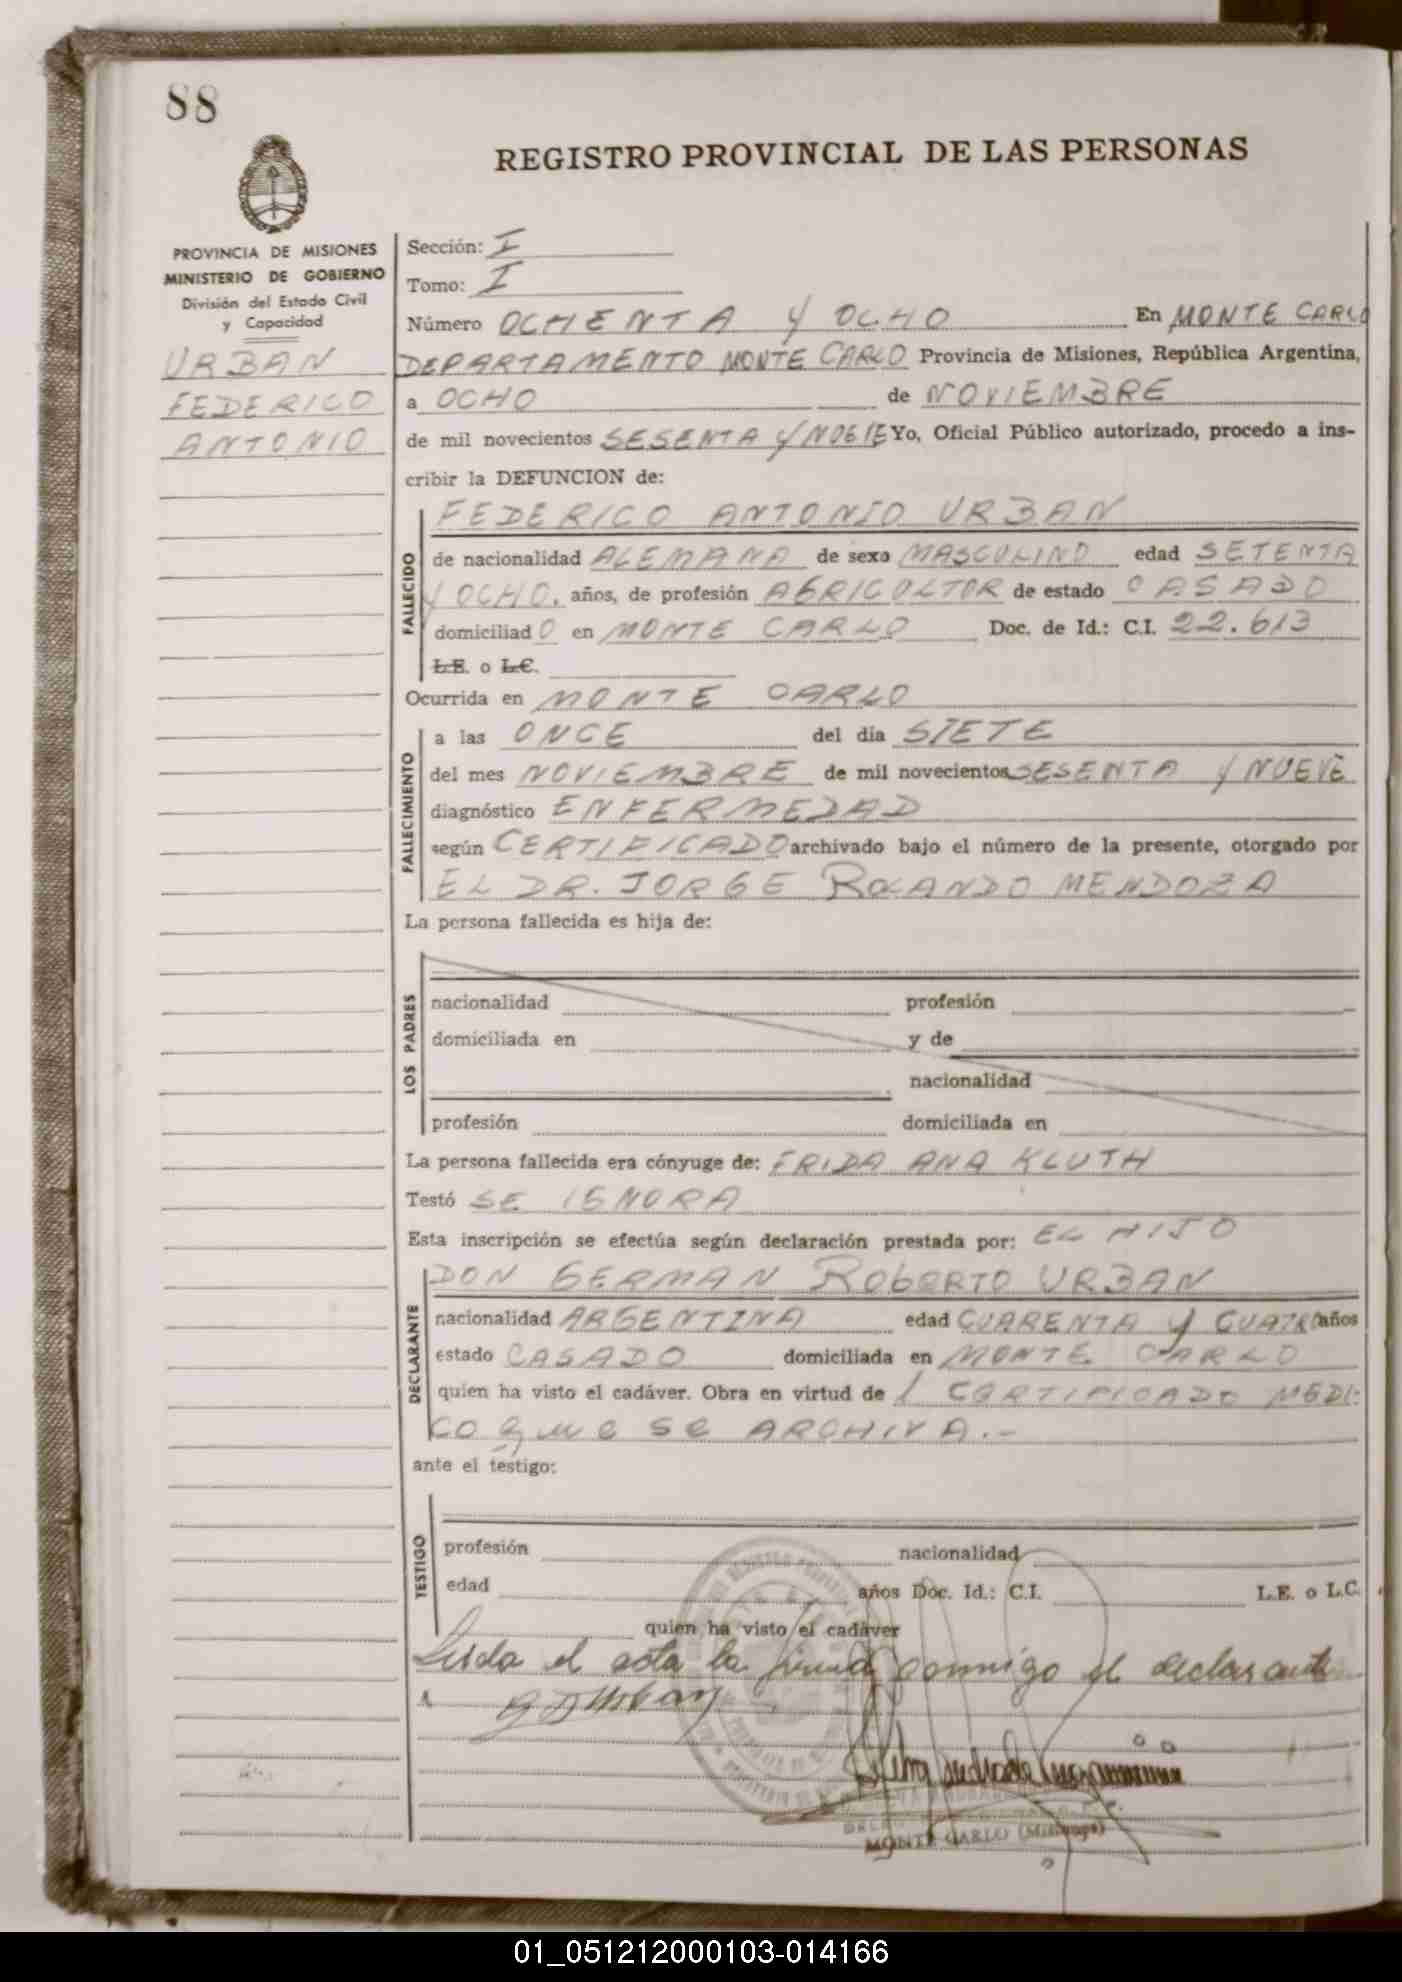 88
REGISTRO PROVINCIAL DE LAS PERSONAS
PROVINCIA DE MISIONES
MINISTERIO DE GOBIERNO
División del Estado Civil
y Capacidad
URBAN
FEDERICO
ANTONIO
Sección: I
Tomo: I
Número OCHENTA Y OCHO En MONTE CARLO
DEPARTAMENTO MONTE CARLO Provincia de Misiones, República Argentina,
a OCHO de NOVIEMBRE
de mil novecientos SESENTA y NUEVE Yo, Oficial Público autorizado, procedo a ins-
cribir la DEFUNCION de:
FALLECIDO
FEDERICO ANTONIO URBAN
de nacionalidad ALEMANA de sexo MASCULINO edad SETENTA
Y OCHO. años, de profesión AGRICULTOR de estado CASADO
domiciliado en MONTE CARLO Doc. de Id.: C.I. 22.613
L.E. o L.C.
Ocurrida en MONTE CARLO
FALLECIMIENTO
a las ONCE del día SIETE
del mes NOVIEMBRE de mil novecientos SESENTA Y NUEVE
diagnóstico ENFERMEDAD
según CERTIFICADO archivado bajo el número de la presente, otorgado por
EL DR. JORGE ROLANDO MENDOZA
La persona fallecida es hija de:
LOS PADRES
nacionalidad profesión
domiciliada en y de
nacionalidad
profesión domiciliada en
La persona fallecida era cónyuge de: FRIDA ANA KLUTH
Testó SE IGNORA
Esta inscripción se efectúa según declaración prestada por: EL HIJO
DECLARANTE
DON GERMAN ROBERTO URBAN
nacionalidad ARGENTINA edad CUARENTA Y CUATRO años
estado CASADO domiciliada en MONTE CARLO
quien ha visto el cadáver. Obra en virtud de 1 CERTIFICADO MEDI-
CO que se ARCHIVA.-
ante el testigo:
TESTIGO
profesión nacionalidad
edad años Doc. Id.: C.I. L.E. o L.C.
quien ha visto el cadáver
Leida el acta la firma conmigo el declarante
MONTE CARLO (Misiones)
01_051212000103-014166